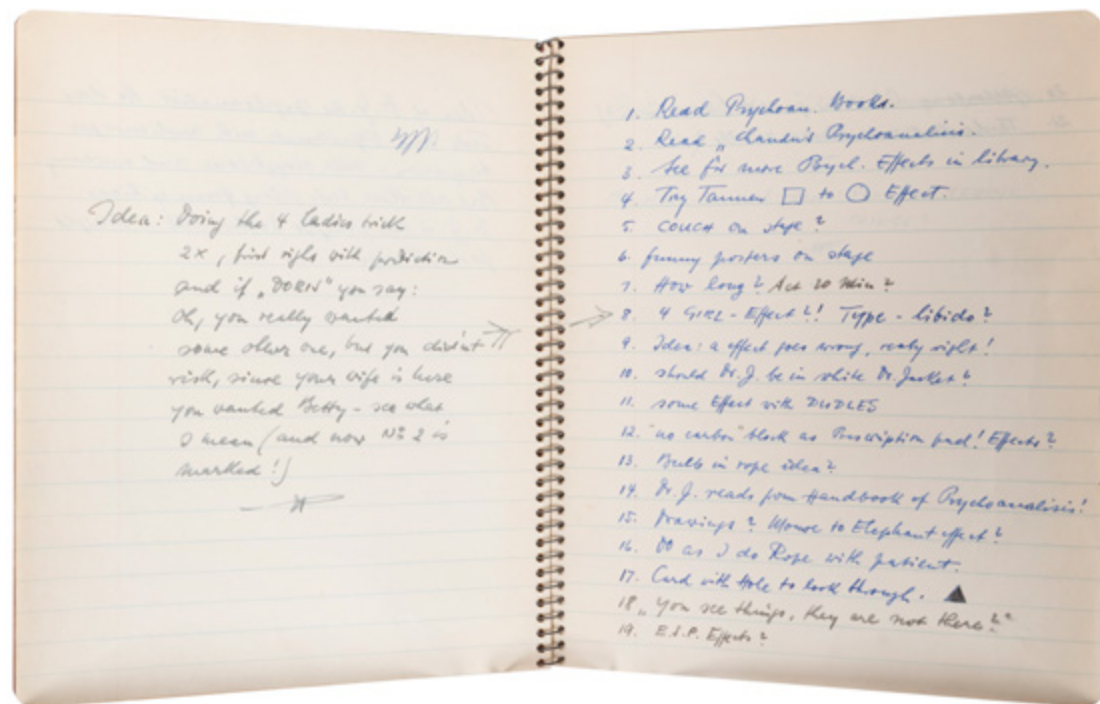 Idea: Doing the 4 ladies trick
2x, first right with prediction
and if „DORIS" you say:
Oh, you really wanted
some other one, but you didn't
wish, since your wife is here
you wanted Betty - see what
I mean (and now No 2 is
marked!)
1. Read Psychoan. Books.
2. Read „ Psychoanalisis.
3. See for more Psych. Effects in library.
4. Try Tanner □ to ○ Effect.
5. COUCH on stage?
6. funny posters on stage
7. How long? Act 20 Min?
8. 4 GIRL - Effect?! Type - libido?
9. Idea: a effect goes wrong, really right!
10. should Dr. J. be in white Dr. Jacket?
11. some Effect with DUDLES
12. "no carbon" block as Prescription pad! Effects?
13. Bulb in rope idea?
14. Dr. J. reads from Handbook of Psychoanalisis!
15. Drawings? Mouse to Elephant effect?
16. DO as I do Rope with patient.
17. Card with Hole to look through.
18. „You see things, they are not there?"
19. E.S.P. Effects?